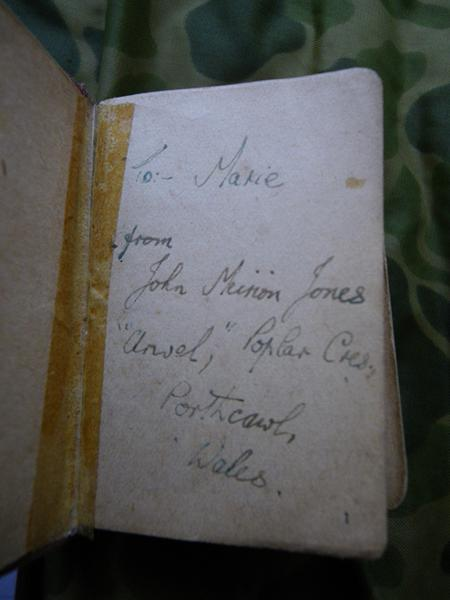 To:- Marie
from
John Meirion Jones
"Arwel," Poplar Cres:,
Porthcawl,
Wales.
1